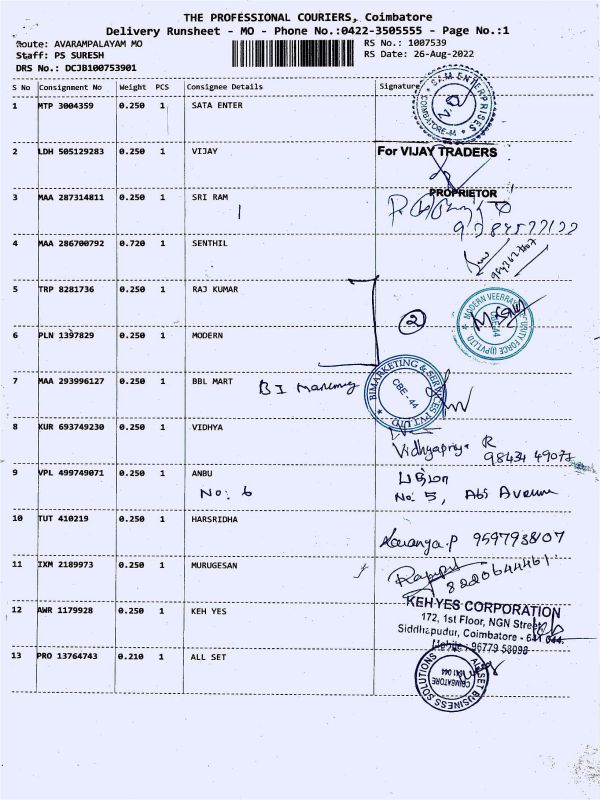 THE PROFESSIONAL COURIERS, Coimbatore
Delivery Runsheet - MO - Phone No.:0422-3505555 - Page No.:1
Route: AVARAMPALAYAM MO RS No.: 1007539
Staff: PS SURESH RS Date: 26-Aug-2022
DRS No.: DCJB100753901
S No Consignment No Weight PCS Consignee Details Signature
1 MTP 3004359 0.250 1 SATA ENTER
ENTERPRISES COIMBATORE-44
2 LDH 505129283 0.250 1 VIJAY For VIJAY TRADERS
PROPRIETOR
3 MAA 287314811 0.250 1 SRI RAM
4 MAA 286700792 0.720 1 SENTHIL
5 TRP 8281736 0.250 1 RAJ KUMAR
2
6 PLN 1397829 0.250 1 MODERN
7 MAA 293996127 0.250 1 BBL MART BI
BIMARKETING & SERVICES PVT LTD CBE - 44
8 KUR 693749230 0.250 1 VIDHYA
Vidhyapriya R
98434 49077
9 VPL 499749071 0.250 1 ANBU
No: 6 No: 5, Abi Avenue
10 TUT 410219 0.250 1 HARSRIDHA
Saranya.P 9597938107
11 IXM 2189973 0.250 1 MURUGESAN
8220644461
12 AWR 1179928 0.250 1 KEH YES KEH YES CORPORATION
172, 1st Floor, NGN Street
Siddhapudur, Coimbatore - 641 044.
Mobile : 96779 58098
13 PRO 13764743 0.210 1 ALL SET
ALLSET BUSINESS SOLUTIONS COIMBATORE 641 044